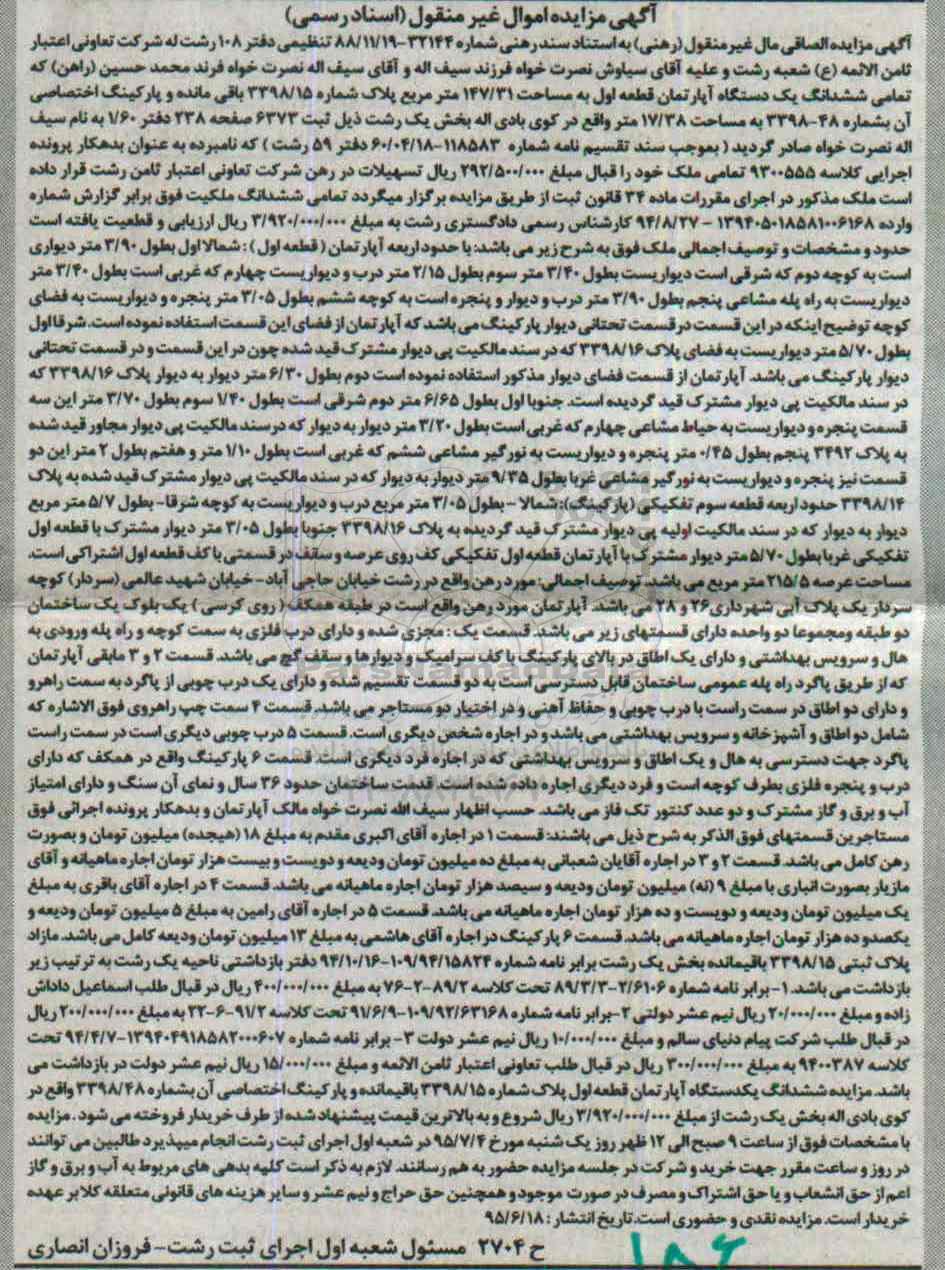 آگهی مزایده اموال غیر منقول (اسناد رسمی)
آگهی مزایده الصاقی مال غیرمنقول (رهنی) به استناد سند رهنی شماره ۳۲۱۴۴-۸۸/۱۱/۱۹ تنظیمی دفتر ۱۰۸ رشت له شرکت تعاونی اعتبار
ثامن الائمه (ع) شعبه رشت و علیه آقای سیاوش نصرت خواه فرزند سیف اله و آقای سیف اله نصرت خواه فرند محمد حسین (راهن) که
تمامی ششدانگ یک دستگاه آپارتمان قطعه اول به مساحت ۱۴۷/۳۱ متر مربع پلاک شماره ۳۳۹۸/۱۵ باقی مانده و پارکینگ اختصاصی
آن بشماره ۴۸-۳۳۹۸ به مساحت ۱۷/۳۸ متر واقع در کوی بادی اله بخش یک رشت ذیل ثبت ۶۳۷۳ صفحه ۲۳۸ دفتر ۱/۶۰ به نام سیف
اله نصرت خواه صادر گردید (بموجب سند تقسیم نامه شماره ۱۱۸۵۸۳-۶۰/۰۴/۱۸ دفتر ۵۹ رشت) که نامبرده به عنوان بدهکار پرونده
اجرایی کلاسه ۹۳۰۰۵۵۵ تمامی ملک خود را قبال مبلغ ۲۹۲/۵۰۰/۰۰۰ ریال تسهیلات در رهن شرکت تعاونی اعتبار ثامن رشت قرار داده
است ملک مذکور در اجرای مقررات ماده ۳۴ قانون ثبت از طریق مزایده برگزار میگردد تمامی ششدانگ ملکیت فوق برابر گزارش شماره
وارده ۱۳۹۴۰۵۰۱۸۵۸۱۰۰۶۱۶۸ – ۹۴/۸/۲۷ کارشناس رسمی دادگستری رشت به مبلغ ۳/۹۲۰/۰۰۰/۰۰۰ ریال ارزیابی و قطعیت یافته است
حدود و مشخصات و توصیف اجمالی ملک فوق به شرح زیر می باشد: با حدود اربعه آپارتمان (قطعه اول): شمالا اول بطول ۳/۹۰ متر دیواری
است به کوچه دوم که شرقی است دیواریست بطول ۳/۴۰ متر سوم بطول ۲/۱۵ متر درب و دیواریست چهارم که غربی است بطول ۳/۴۰ متر
دیواریست به راه پله مشاعی پنجم بطول ۳/۹۰ متر درب و دیوار و پنجره است به کوچه ششم بطول ۳/۰۵ متر پنجره و دیواریست به فضای
کوچه توضیح اینکه در این قسمت در قسمت تحتانی دیوار پارکینگ می باشد که آپارتمان از فضای این قسمت استفاده نموده است. شرقا اول
بطول ۵/۷۰ متر دیواریست به فضای پلاک ۳۳۹۸/۱۶ که در سند مالکیت پی دیوار مشترک قید شده چون در این قسمت و در قسمت تحتانی
دیوار پارکینگ می باشد. آپارتمان از قسمت فضای دیوار مذکور استفاده نموده است دوم بطول ۶/۳۰ متر دیوار به دیوار پلاک ۳۳۹۸/۱۶ که
در سند مالکیت پی دیوار مشترک قید گردیده است. جنوبا اول بطول ۶/۶۵ متر دوم شرقی است بطول ۱/۴۰ سوم بطول ۳/۷۰ متر این سه
قسمت پنجره و دیواریست به حیاط مشاعی چهارم که غربی است بطول ۳/۲۰ متر دیوار به دیوار که درسند مالکیت پی دیوار مجاور قید شده
به پلاک ۳۴۹۲ پنجم بطول ۰/۴۵ متر پنجره و دیواریست به نورگیر مشاعی ششم که غربی است بطول ۱/۱۰ متر و هفتم بطول ۲ متر این دو
قسمت نیز پنجره و دیواریست به نورگیر مشاعی غربا بطول ۹/۳۵ متر دیوار به دیوار که در سند مالکیت پی دیوار مشترک قید شده به پلاک
۳۳۹۸/۱۴ حدود اربعه قطعه سوم تفکیکی (پارکینگ): شمالا – بطول ۳/۰۵ متر مربع درب و دیواریست به کوچه شرقا- بطول ۵/۷ متر مربع
دیوار به دیوار که در سند مالکیت اولیه پی دیوار مشترک قید گردیده به پلاک ۳۳۹۸/۱۶ جنوبا بطول ۳/۰۵ متر دیوار مشترک با قطعه اول
تفکیکی غربا بطول ۵/۷۰ متر دیوار مشترک با آپارتمان قطعه اول تفکیکی کف روی عرصه و سقف در قسمتی با کف قطعه اول اشتراکی است.
مساحت عرصه ۲۱۵/۵ متر مربع می باشد. توصیف اجمالی: مورد رهن واقع در رشت خیابان حاجی آباد- خیابان شهید عالمی (سردار) کوچه
سردار یک پلاک آبی شهرداری ۲۶ و ۲۸ می باشد. آپارتمان مورد رهن واقع است در طبقه همکف (روی کرسی) یک بلوک یک ساختمان
دو طبقه ومجموعا دو واحده دارای قسمتهای زیر می باشد. قسمت یک: مجزی شده و دارای درب فلزی به سمت کوچه و راه پله ورودی به
هال و سرویس بهداشتی و دارای یک اطاق در بالای پارکینگ با کف سرامیک و دیوارها و سقف گچ می باشد. قسمت ۲ و ۳ مابقی آپارتمان
که از طریق پاگرد راه پله عمومی ساختمان قابل دسترسی است به دو قسمت تقسیم شده و دارای یک درب چوبی از پاگرد به سمت راهرو
و دارای دو اطاق در سمت راست با درب چوبی و حفاظ آهنی و در اختیار دو مستاجر می باشد. قسمت ۴ سمت چپ راهروی فوق الاشاره که
شامل دو اطاق و آشپزخانه و سرویس بهداشتی می باشد و در اجاره شخص دیگری است. قسمت ۵ درب چوبی دیگری است در سمت راست
پاگرد جهت دسترسی به هال و یک اطاق و سرویس بهداشتی که در اجاره فرد دیگری است. قسمت ۶ پارکینگ واقع در همکف که دارای
درب و پنجره فلزی بطرف کوچه است و فرد دیگری اجاره داده شده است. قدمت ساختمان حدود ۳۶ سال و نمای آن سنگ و دارای امتیاز
آب و برق و گاز مشترک و دو عدد کنتور تک فاز می باشد. حسب اظهار سیف الله نصرت خواه مالک آپارتمان و بدهکار پرونده اجرائی فوق
مستاجرین قسمتهای فوق الذکر به شرح ذیل می باشند: قسمت ۱ در اجاره آقای اکبری مقدم به مبلغ ۱۸ (هیجده) میلیون تومان و بصورت
رهن کامل می باشد. قسمت ۲ و ۳ در اجاره آقایان شعبانی به مبلغ ده میلیون تومان ودیعه و دویست و بیست هزار تومان اجاره ماهیانه و آقای
مازیار بصورت انباری با مبلغ ۹ (نه) میلیون تومان ودیعه و سیصد هزار تومان اجاره ماهیانه می باشد. قسمت ۴ در اجاره آقای باقری به مبلغ
یک میلیون تومان ودیعه و دویست و ده هزار تومان اجاره ماهیانه می باشد. قسمت ۵ در اجاره آقای رامین به مبلغ ۵ میلیون تومان ودیعه و
یکصدو ده هزار تومان اجاره ماهیانه می باشد. قسمت ۶ پارکینگ در اجاره آقای هاشمی به مبلغ ۱۳ میلیون تومان ودیعه کامل می باشد. مازاد
پلاک ثبتی ۳۳۹۸/۱۵ باقیمانده بخش یک رشت برابر نامه شماره ۱۰۹/۹۴/۱۵۸۲۴-۹۴/۱۰/۱۶ دفتر بازداشتی ناحیه یک رشت به ترتیب زیر
بازداشت می باشد. ۱- برابر نامه شماره ۲/۶۱۰۶-۸۹/۳/۳ تحت کلاسه ۸۹/۲-۲-۷۶ به مبلغ ۴۰۰/۰۰۰/۰۰۰ ریال در قبال طلب اسماعیل داداش
زاده و مبلغ ۲۰/۰۰۰/۰۰۰ ریال نیم عشر دولتی ۲-برابر نامه شماره ۱۰۹/۹۲/۶۳۱۶۸-۹۱/۶/۹ تحت کلاسه ۹۱/۲-۶-۲۲ به مبلغ ۲۰۰/۰۰۰/۰۰۰ ریال
در قبال طلب شرکت پیام دنیای سالم و مبلغ ۱۰/۰۰۰/۰۰۰ ریال نیم عشر دولت ۳- برابر نامه شماره ۱۳۹۴۰۴۹۱۸۵۸۲۰۰۰۶۰۷-۹۴/۴/۷ تحت
کلاسه ۹۴۰۰۳۸۷ به مبلغ ۳۰۰/۰۰۰/۰۰۰ ریال در قبال طلب تعاونی اعتبار ثامن الائمه و مبلغ ۱۵/۰۰۰/۰۰۰ ریال نیم عشر دولت در بازداشت می
باشد. مزایده ششدانگ یکدستگاه آپارتمان قطعه اول پلاک شماره ۳۳۹۸/۱۵ باقیمانده و پارکینگ اختصاصی آن بشماره ۳۳۹۸/۴۸ واقع در
کوی بادی اله بخش یک رشت از مبلغ ۳/۹۲۰/۰۰۰/۰۰۰ ریال شروع و به بالاترین قیمت پیشنهاد شده از طرف خریدار فروخته می شود. مزایده
با مشخصات فوق از ساعت ۹ صبح الی ۱۲ ظهر روز یک شنبه مورخ ۹۵/۷/۴ در شعبه اول اجرای ثبت رشت انجام میپذیرد طالبین می توانند
در روز و ساعت مقرر جهت خرید و شرکت در جلسه مزایده حضور به هم رسانند. لازم به ذکر است کلیه بدهی های مربوط به آب و برق و گاز
اعم از حق انشعاب و یا حق اشتراک و مصرف در صورت موجود و همچنین حق حراج و نیم عشر و سایر هزینه های قانونی متعلقه کلا بر عهده
خریدار است. مزایده نقدی و حضوری است. تاریخ انتشار: ۹۵/۶/۱۸
ح ۲۷۰۴ مسئول شعبه اول اجرای ثبت رشت- فروزان انصاری
۱۸۶